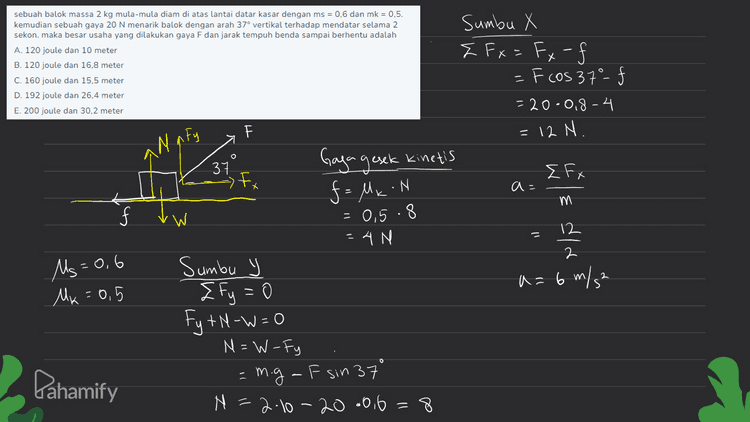 sebuah balok massa 2 kg mula-mula diam di atas lantai datar kasar dengan ms = 0,6 dan mk = 0,5.
kemudian sebuah gaya 20 N menarik balok dengan arah 37° vertikal terhadap mendatar selama 2
sekon. maka besar usaha yang dilakukan gaya F dan jarak tempuh benda sampai berhentu adalah
A. 120 joule dan 10 meter
B. 120 joule dan 16,8 meter
C. 160 joule dan 15,5 meter
D. 192 joule dan 26,4 meter
E. 200 joule dan 30,2 meter
N Fy F
37°
Fx
f W
Ms = 0,6
Mk = 0,5
Sumbu y
Σ Fy = 0
Fy + N - W = 0
N = W - Fy
= m.g - F sin 37°
N = 2.10 - 20 . 0,6 = 8
Gaya gesek kinetis
f = Mk . N
= 0,5 . 8
= 4 N
Sumbu X
Σ Fx = Fx - f
= F cos 37° - f
= 20 . 0,8 - 4
= 12 N.
a = Σ Fx / m
= 12 / 2
a = 6 m/s²
Pahamify